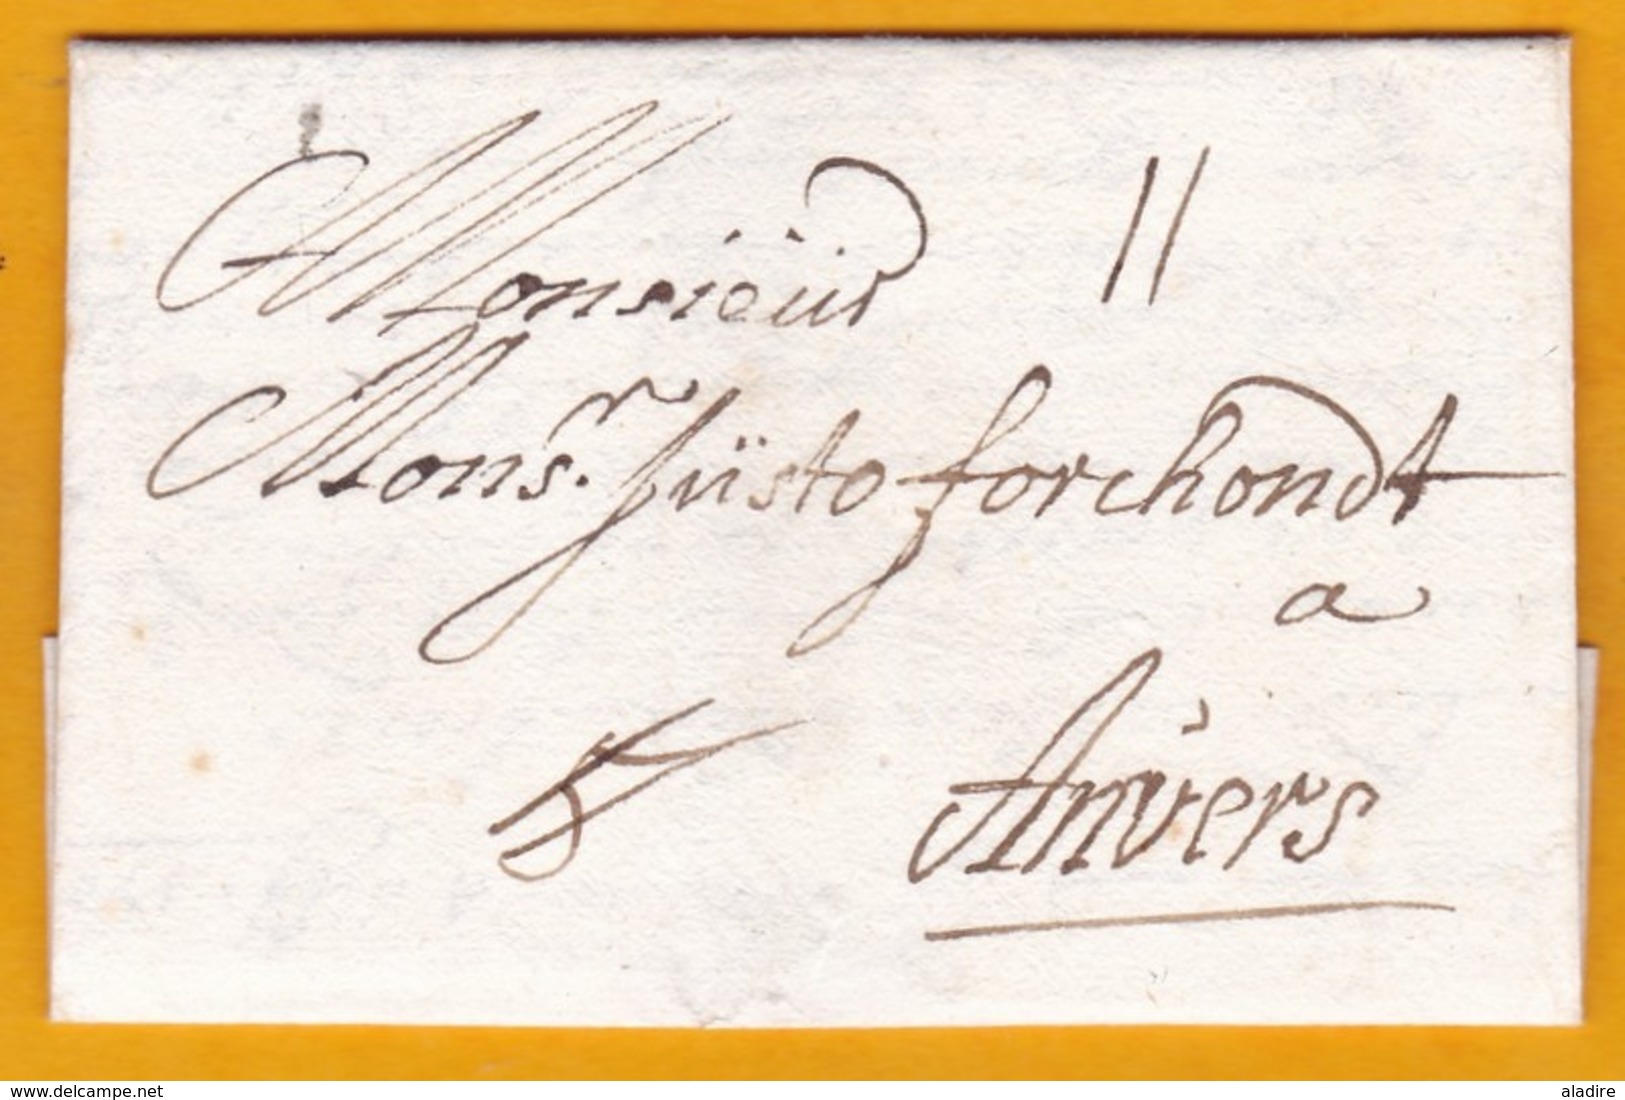 Monsieur 11
Mons.r Justo forchondt
a
Anvers
www.delcampe.net
aladire